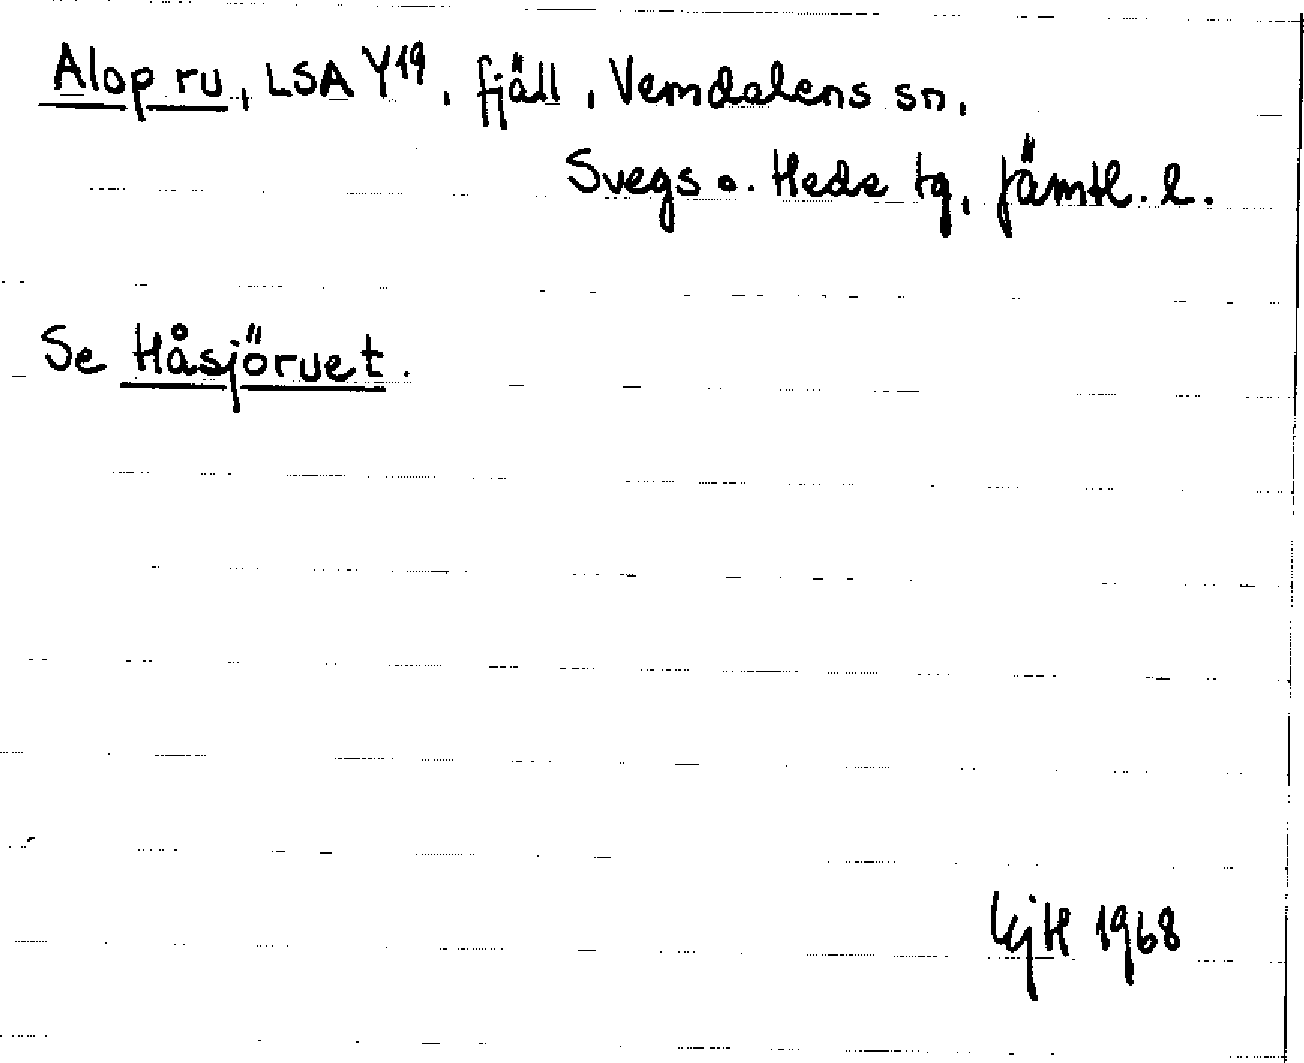 Alop ru, LSA Y19, fjäll, Vemdalens sn,
Svegs o. Heds tg, Jämtl. l.
Se Håsjöruet.
1968